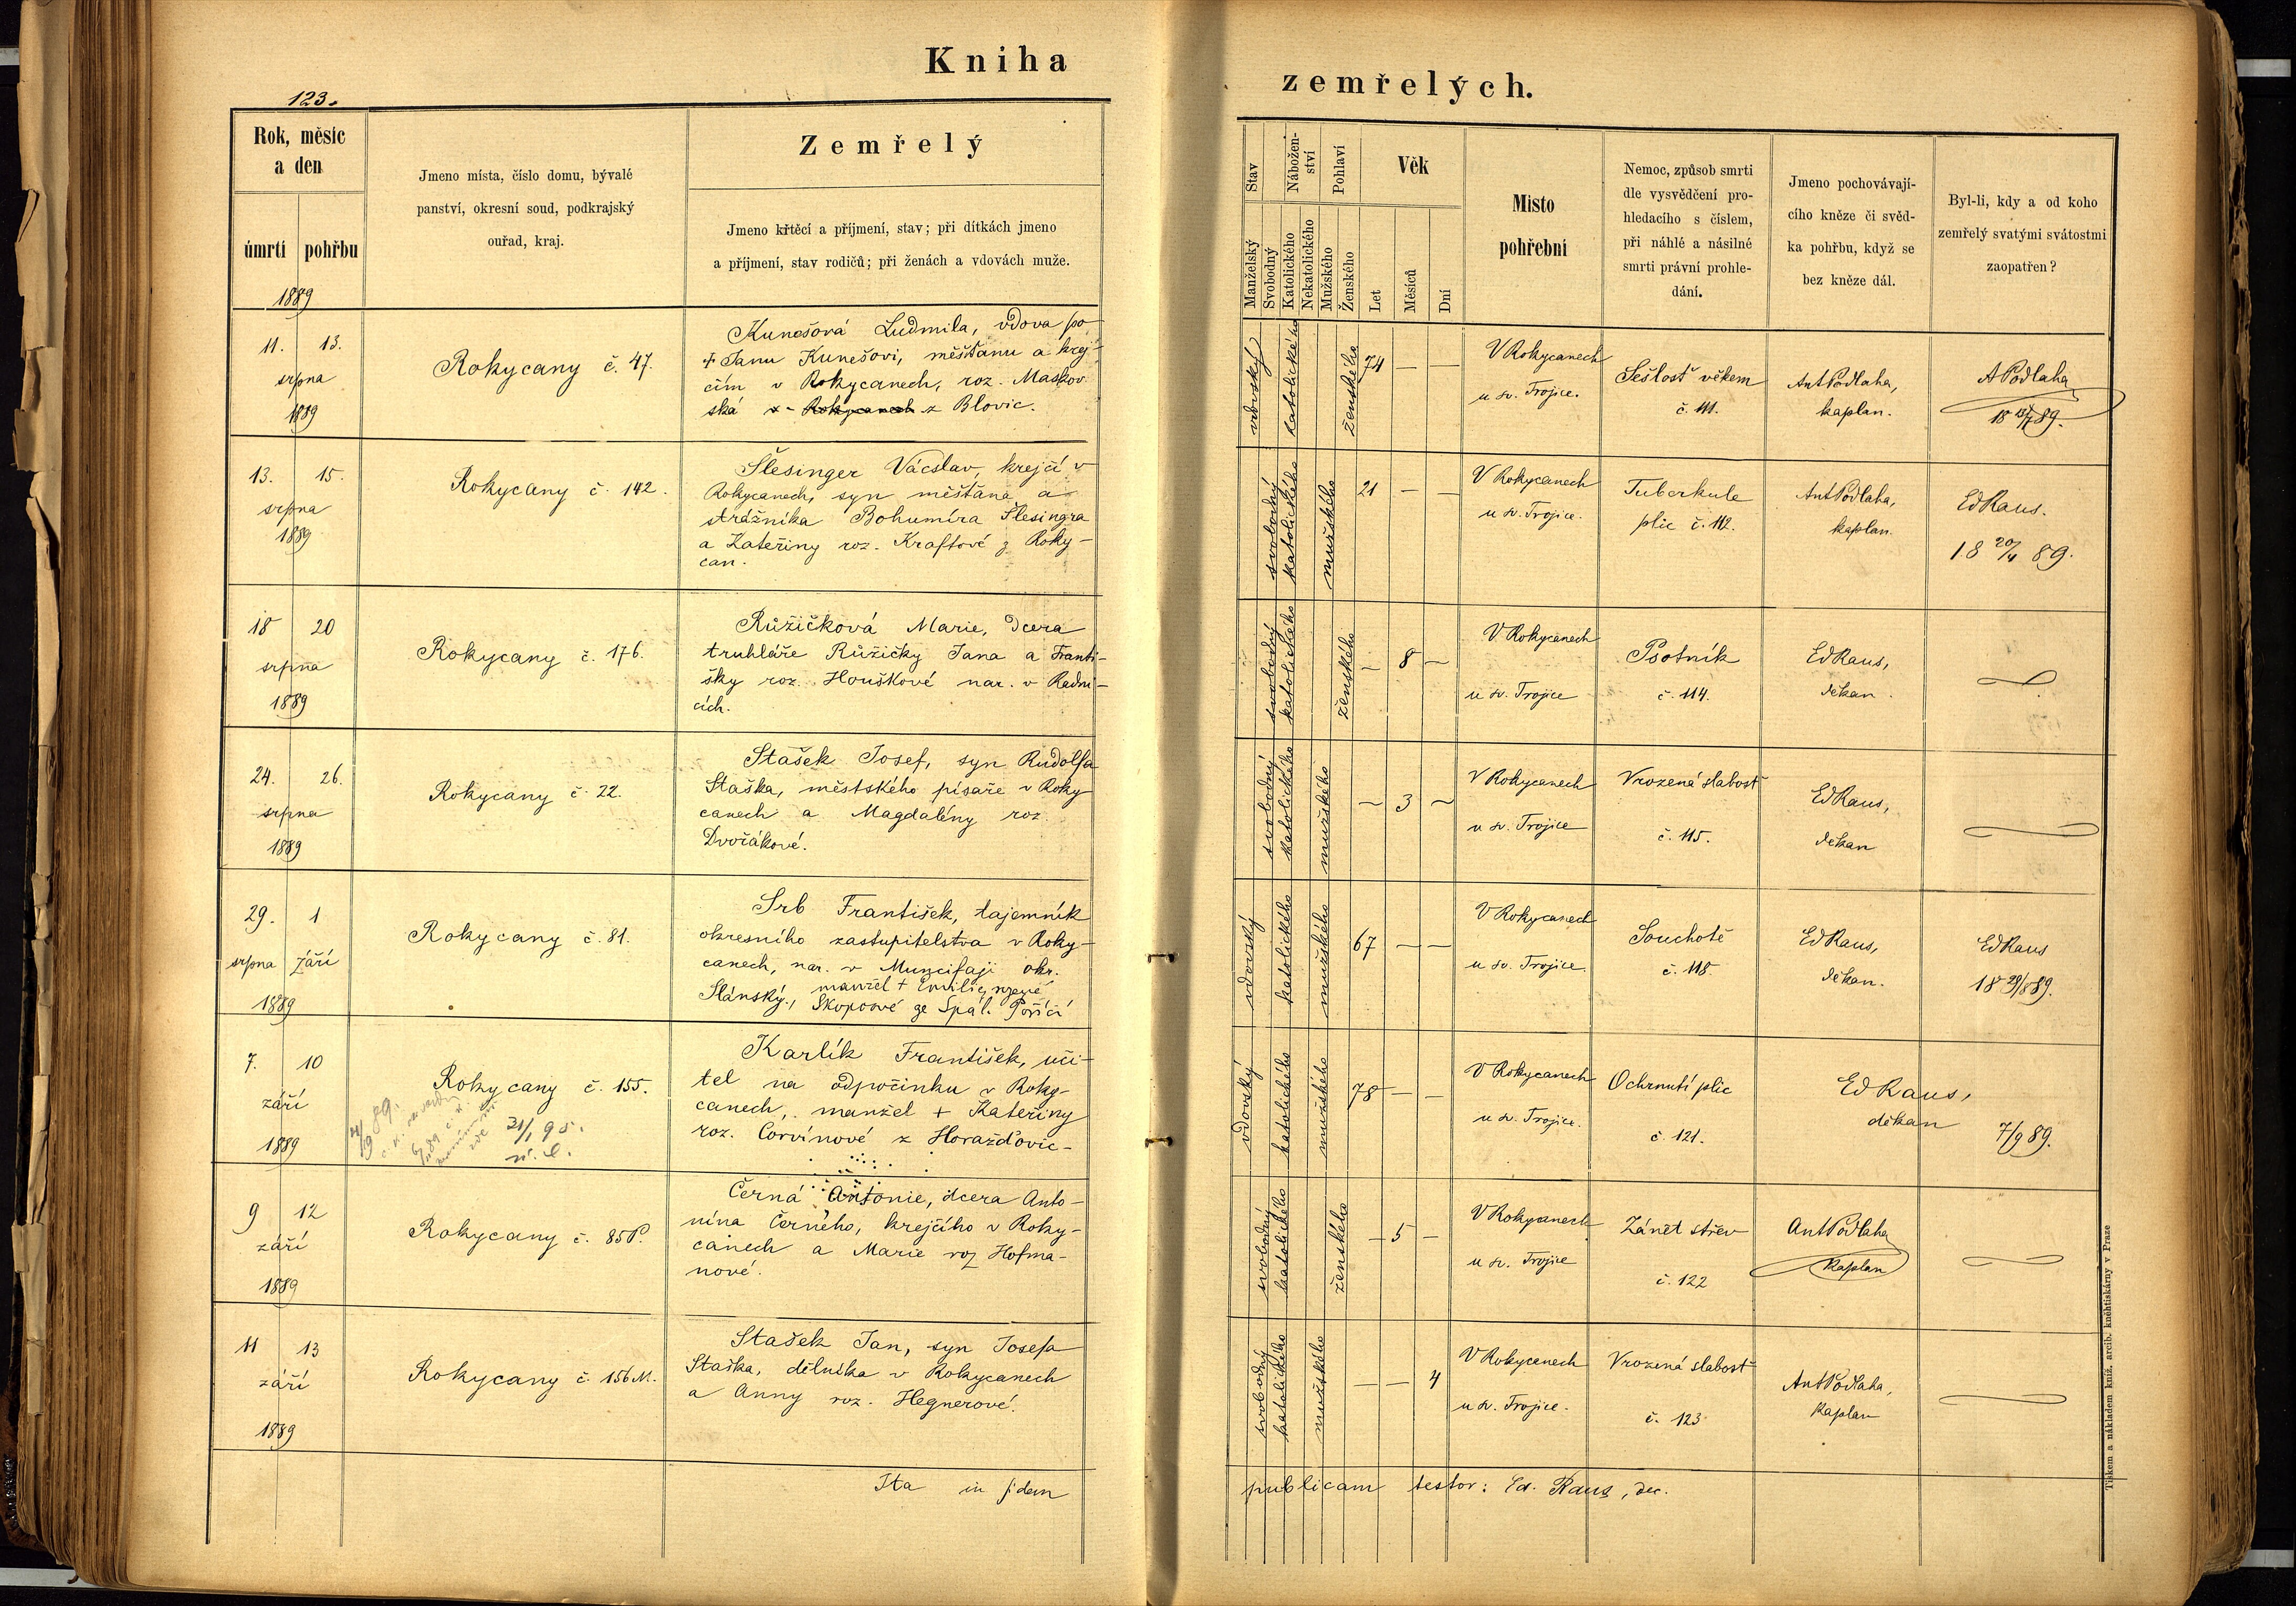 Kniha
zemřelých.
123.
Rok, měsíc
a den
úmrtí pohřbu
1889
Jmeno místa, číslo domu, bývalé
panství, okresní soud, podkrajský
ouřad, kraj.
Zemřelý
Jmeno křtěcí a příjmení, stav; při dítkách jmeno
a příjmení, stav rodičů; při ženách a vdovách muže.
Stav
Manželský
Svobodný
Nábožen-
ství
Katolického
Nekatolického
Pohlaví
Mužského
Ženského
Věk
Let
Měsíců
Dní
Misto
pohřební
Nemoc, způsob smrti
dle vysvědčení pro-
hledacího s číslem,
při náhlé a násilné
smrti právní prohle-
dání.
Jmeno pochovávají-
cího kněze či svěd-
ka pohřbu, když se
bez kněze dál.
Byl-li, kdy a od koho
zemřelý svatými svátostmi
zaopatřen?
11. 13.
srpna
1889
Rokycany č. 47.
Kunešová Ludmila, vdova po
+ Janu Kunešovi, měšťanu a krej-
čím v Rokycanech, roz. Maškov
ská z Blovic.
vdovský
katolického
ženského
74 — —
V Rokycanech
u sv. Trojice.
Sešlosť věkem
č. 111.
Ant Podlaha,
kaplan.
A Podlaha
13. 15.
srpna
1889
Rokycany č. 142.
Šlesinger Vácslav, krejčí v
Rokycanech, syn měšťana a
strážníka Bohumíra Šlesingra
a Kateřiny roz. Kraftové z Roky-
can.
svobodný
katolického
mužského
21 — —
V Rokycanech
u sv. Trojice.
Tuberkule
plic č. 112.
Ant Podlaha,
kaplan.
Ed Raus.
18 20/4 89.
18 20
srpna
1889
Rokycany č. 176.
Růžičková Marie, dcera
truhláře Růžičky Jana a Franti-
šky roz. Houškové nar. v Radni-
cích.
svobodný
katolického
ženského
— 8 —
V Rokycanech
u sv. Trojice
Psotník
č. 114.
Ed Raus,
děkan.
24. 26.
srpna
1889
Rokycany č. 22.
Stašek Josef, syn Rudolfa
Staška, městského písaře v Roky
canech a Magdalény roz.
Dvořákové.
svobodný
katolického
mužského
— 3 —
V Rokycanech
u sv. Trojice
Vrozená slabosť
č. 115.
Ed Raus,
děkan
29. 1
srpna září
1889
Rokycany č. 81.
Srb František, tajemník
okresního zastupitelstva v Roky-
canech, nar. v Muncifaji okr.
Slánský., manžel + Emilie,
Skopové ze Spál. Poříčí
vdovský
katolického
mužského
67 — —
V Rokycanech
u sv. Trojice.
Souchotě
č. 118.
Ed Raus,
děkan.
Ed Raus
18 29/8 89.
7. 10
září
1889
Rokycany č. 155.
21/1 95.
Karlík František, uči-
tel na odpočinku v Roky-
canech, manžel + Kateřiny
roz. Corvínové z Horažďovic-
vdovský
katolického
mužského
78 — —
V Rokycanech
u sv. Trojice.
Ochrnutí plic
č. 121.
Ed Raus,
děkan
7/9 89.
9 12
září
1889
Rokycany č. 85P.
Černá Antonie, dcera Anto-
nína Černého, krejčího v Roky-
canech a Marie roz Hofma-
nové.
svobodný
katolického
ženského
— 5 —
V Rokycanech
u sv. Trojice
Zánět střev
č. 122
Ant Podlaha
kaplan
11 13
září
1889
Rokycany č. 156 M.
Stašek Jan, syn Josefa
Staška, dělníka v Rokycanech
a Anny roz. Hegnerové.
svobodný
katolického
mužského
— — 4
V Rokycanech
u sv. Trojice.
Vrozená slabosť
č. 123
Ant Podlaha,
kaplan
Ita in fidem
publicam testor: Ed. Raus, dec.
Tiskem a nákladem kniž. arcib. kněhtiskárny v Praze